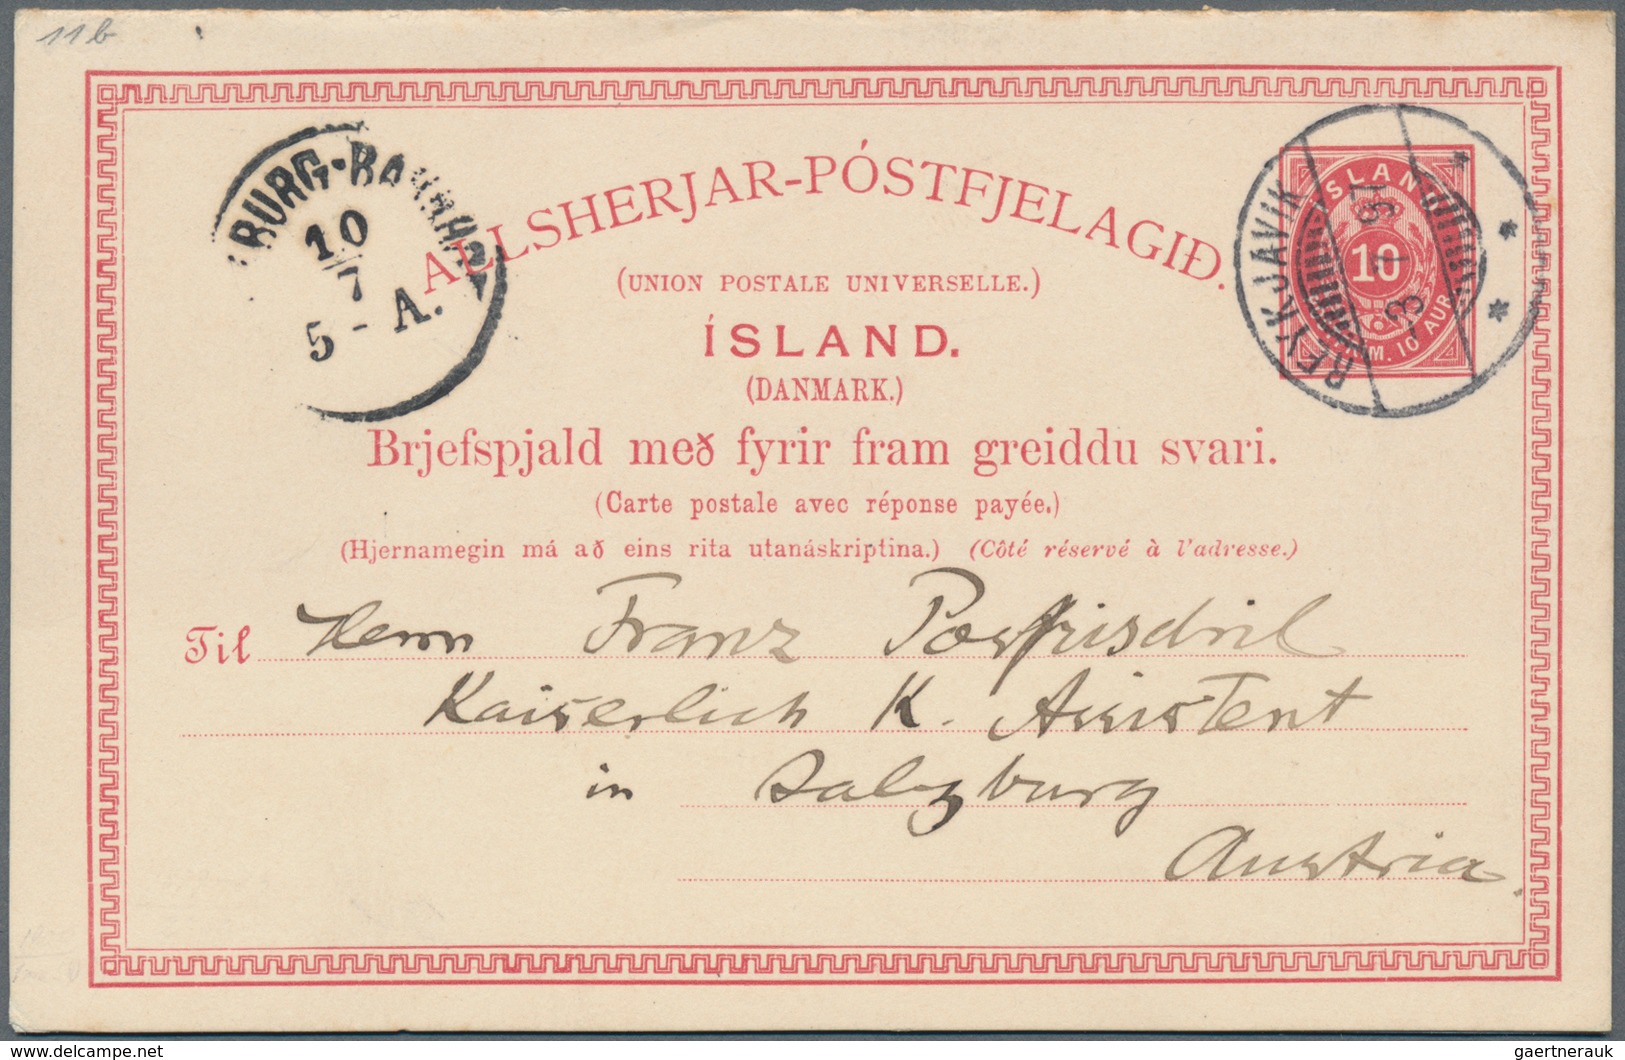 11b
ALLSHERJAR-PÓSTFJELAGIÐ.
(UNION POSTALE UNIVERSELLE.)
ÍSLAND.
(DANMARK.)
Brjefspjald með fyrir fram greiddu svari.
(Carte postale avec réponse payée.)
(Hjernamegin má að eins rita utanáskriptina.) (Côté réservé à l'adresse.)
BURG-BAHNH
10
7
5 - A.
REYKJAVIK
3 7 97
ÍSLAND
10
10 AUR
Til Herrn Franz
Kaiserlich K. Assistent
in Salzburg
Austria.
www.delcampe.net
gaertnerauk